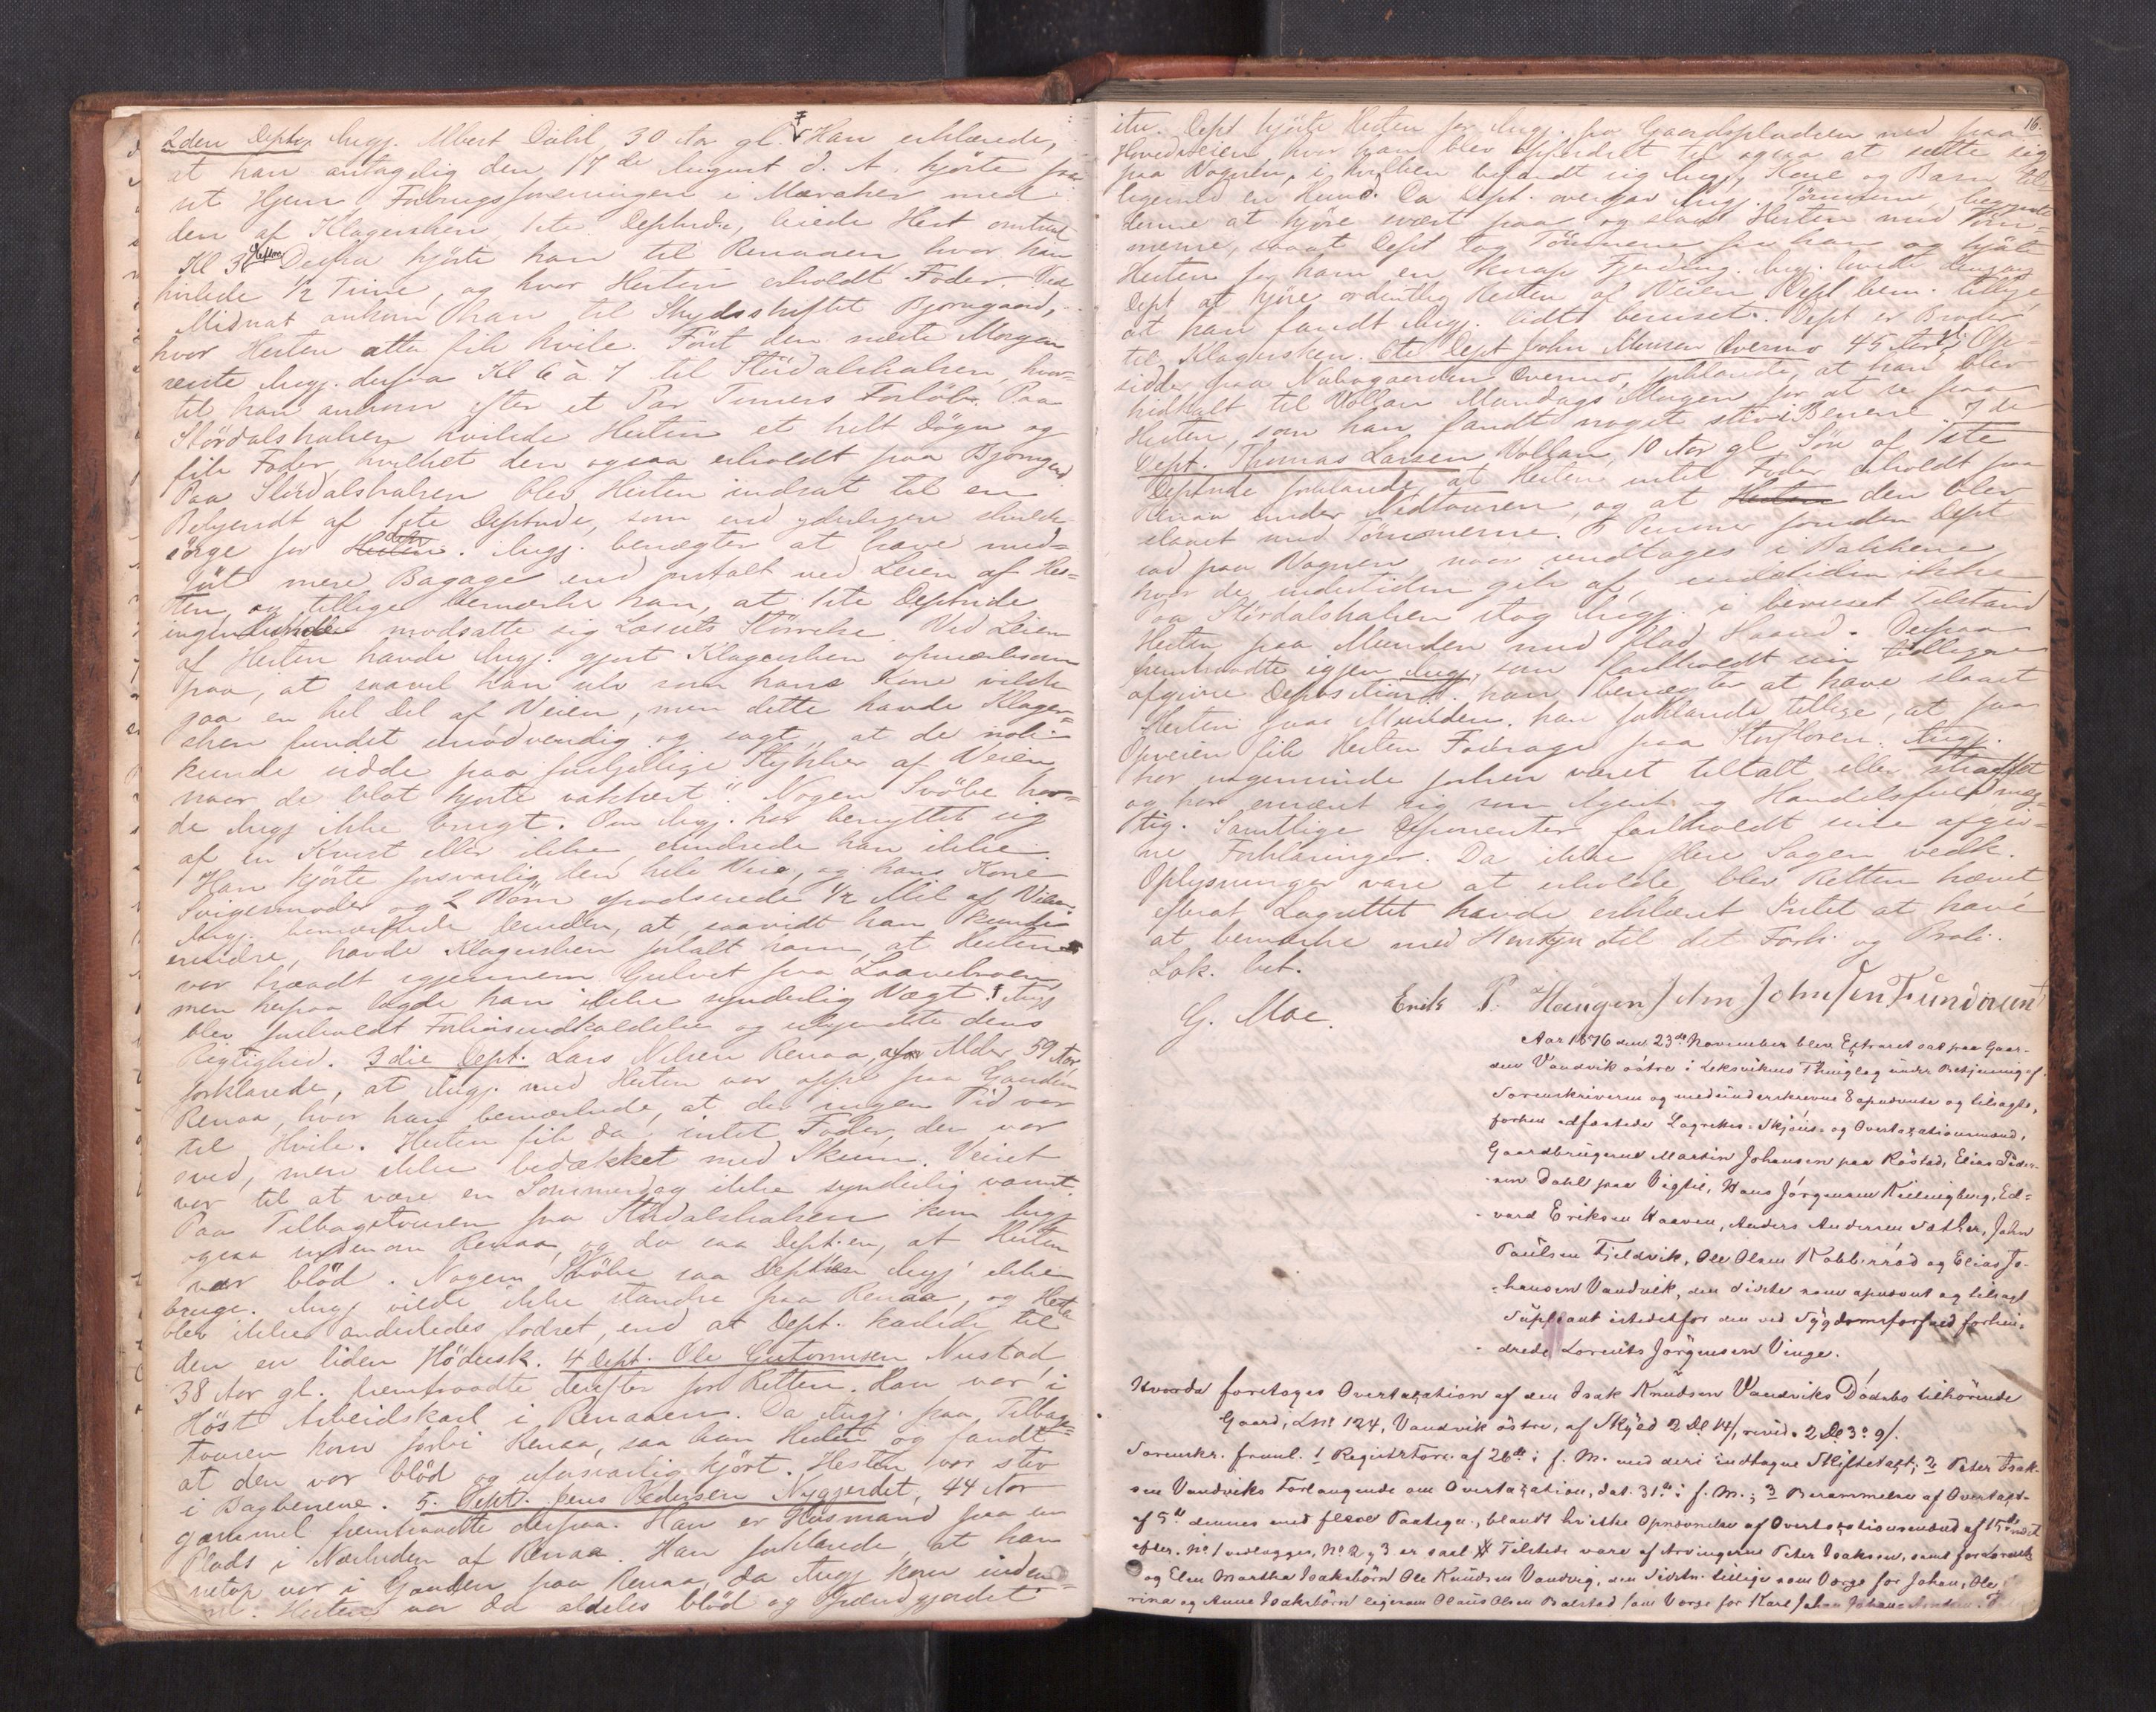 2den Dept. Angj. Albert Dahl, 30 Aar gl. Han erklærede,
at han antagelig den 17de August d. A. kjörte fra
sit Hjem Forbrugsforeningen i Meraker med
den af Klagersken, 1ste Deptnde, leiede Hest omtrent
Kl 3 Efterm. Derfra kjörte han til Renaaen, hvor han
hvilede 1/2 Time, og hvor Hesten erholdt Foder. Ved
Midnat ankom han til Skydsskiftet Bjorngaard,
hvor Hesten atter fik hvile. Först den næste Morgen
reiste Angj. derfra Kl 6 à 7 til Stördalshalsen, hvor-
til han ankom efter et Par Timers Forlöb. Paa
Stördalshalsen hvilede Hesten et helt Dögn og
fik Foder, hvilket den ogsaa erholdt paa Bjorngrd
Paa Stördalshalsen blev Hesten indsat til en
Bekjendt af 1ste Deptnde, som end yderligere skulde
sörge for den. Angj. benægter at have med-
fört mere Bagage end omtalt ved Leien af Hes-
ten, og tillige bemærker han, at 1ste Deptnde
ingenlunde modsatte sig Læssets Störrelse. Ved Leien
af Hesten havde Angj. gjort Klagersken opmærksom
paa, at saavel han selv som hans Kone vilde
gaa en hel Del af Veien, men dette havde Klager-
sken fundet unödvendig og sagt, "at de nok
kunde sidde paa forskjellige Stykker af Veien
naar de blot kjorte vakkert". Nogen Svöbe hav-
de Angj ikke brugt. Om Angj. har benyttet sig
af en Kvist eller ikke erindrede han ikke.
Han kjörte forsvarlig den hele Vei, og hans Kone
Svigermoder og 2 Börn spadserede 1/2 Mil af Veien
Angj. bemærkede desuden, at saavidt han kunde
erindre, havde Klagersken fortalt ham, at Hesten
var traadt igjennem Gulvet paa Laavebroen,
men herpaa lagde han ikke synderlig Vægt. Angj
blev foreholdt Forligsindkaldelse og erkjendte dens
Rigtighed. 3die Dept. Lars Nilsen Renaa, af Alder 59 Aar
forklarede, at Angj. med Hesten var oppe paa Gaarden
Renaa, hvor han bemærkede, at der ingen Tid var
til Hvile. Hesten fik da intet Foder, den var
sved, men ikke bedækket med Skum. Veiret
var til at være en Sommerdag ikke synderlig varmt.
Paa Tilbageturen fra Stördalshalsen kom Angj
ogsaa indenom Renaa, og da saa Depten, at Hesten
var blöd. Nogen Svöbe saa Depten Angj ikke
bruge. Angj vilde ikke standse paa Renaa, og Hesten
blev ikke anderledes fodret, end at Dept. kastede til
den en liden Hödusk. 4 Dept. Ole Guttormsen Nustad
38 Aar gl. fremtraadte derefter for Retten. Han var i
Höst Arbeidskarl i Renaaen. Da Angj. paa Tilbage-
touren kom forbi Renaa, saa han Hesten og fandt
at den var blöd og uforsvarlig kjört. Hesten var stiv
i Bagbenene. 5. Dept. Jens Pedersen Nygjerdet, 44 Aar
gammel fremtraadte derpaa. Han er Husmand paa en
Plads i Nærheden af Renaa. Han forklarede, at han
netop var i Gaarden paa Renaa, da Angj kom inden-
om. Hesten var da aldeles blöd og

16.
itu. Dept kjörte Hesten for Angj. fra Gaardspladsen ned paa
Hovedveien, hvor han blev opfordret til ogsaa at sætte sig
paa Vognen, i hvilken befandt sig Angj, Kone og Barn til-
ligemed en Hund. Da Dept. overgav Angj. Tömmerne, begyndte
denne at kjöre svært paa og slaa Hesten med Töm-
merne, saaat Dept tog Tömmene fra ham og kjörte
Hesten for ham en knap Fjerding. Angj. lovede dengang
Dept at kjöre ordentlig Resten af Veien. Dept bem. tillige
at han fandt Angj. lidt beruset. Dept er Broder
til Klagersken. 6te Dept John Monsen Overmo 45 Aar gl. Op-
sidder paa Nabogaarden Overmo, forklarede, at han blev
hidkalt til Vollan Mandags Morgen for at se paa
Hesten, som han fandt noget stiv i Benene. 7de
Dept. Thomas Larsen Vollan, 10 Aar gl Sön af 1ste
Deptnde forklarede, at Hesten intet Foder erholdt paa
Renaa under Nedtouren, og at den blev
slaaet med Tömmerne. 5 Personer foruden Dept
sad paa Vognen, naar undtages i Bakkene,
hvor de undertiden gik af, undertiden ikke.
Paa Stördalshalsen slog Angj. i beruset Tilstand
Hesten paa Munden med flad Haand. Derpaa
fremtraadte igjen Angj, som fastholdt sin tidligere
afgivne Deposition. han benægter at have slaaet
Hesten paa Munden. han forklarede tillige, at paa
Opveien fik Hesten Fourage paa Storfloren. Angj.
har ingensinde forhen været tiltalt eller straffet
og har ernæret sig som Agent og Handelsfuldmæg-
tig. Samtlige Deponenter fastholdt sine afgiv-
ne Forklaringer. Da ikke flere Sagen vedk.
Oplysninger vare at erholde, blev Retten hævet
efterat Lagrettet havde erklæret Intet at have
at bemærke med Hensyn til det Forh. og Prot.
Lok. bet.
G. Moe. Erik P. Haugen John Johnsen Fundaunet
Aar 1876 den 23de November blev Extraret sat paa Gaar-
den Vandvik östre i Leksvikens Thinglag under Betjening af
Sorenskriveren og medunderskrevne 8 opnævnte og tilsagte,
forhen edfæstede Lagrettes- Skjöns- og Overtaxationsmænd,
Gaardbrugerne Martin Johansen paa Röstad, Elias Peder-
sen Dahl paa Vigtil, Hans Jörgensen Killingberg, Ed-
vard Eriksen Haaven, Anders Andersen Sæther, John
Paulsen Fjeldvik, Ole Olsen Kobberröd og Elias Jo-
hansen Vandvik, den Sidste som opnævnt og tilsagt
Supleant istedetfor den ved Sygdomsforfald forhin-
drede Lorents Jörgensen Vinge.
Hvorda foretoges Overtaxation af den Isak Knudsen Vandviks Dödsbo tilhörende
Gaard, Lnr 124, Vandvik östre, af Skyld 2 Dl 14/, revid. 2 Dl 3 o 9/.
Sorenskr. freml. 1 Registrforr. af 26de i f. M. med deri indtagne Skiftetaxt; 2 Peter Isak-
sen Vandviks Forlangende om Overtaxation, dat. 31te i f. M.; 3 Berammelse af Overtaxt
af 5te dennes med flere Paategn., blandt hvilke Opnævnelse af Overtaxtionsmænd af 15de næst
efter. No 1 vedlægges, No 2 og 3 er saal. # Tilstede vare af Arvingerne Peter Isaksen, samt for Lorents
og Elen Martha Isaksbörn Ole Knudsen Vandvig, den Sidstn. tillige som Værge for Johan, Ole
rina og Anne Isaksbörn ligesom Olaus Olsen Balstad som Værge for Karl Johan